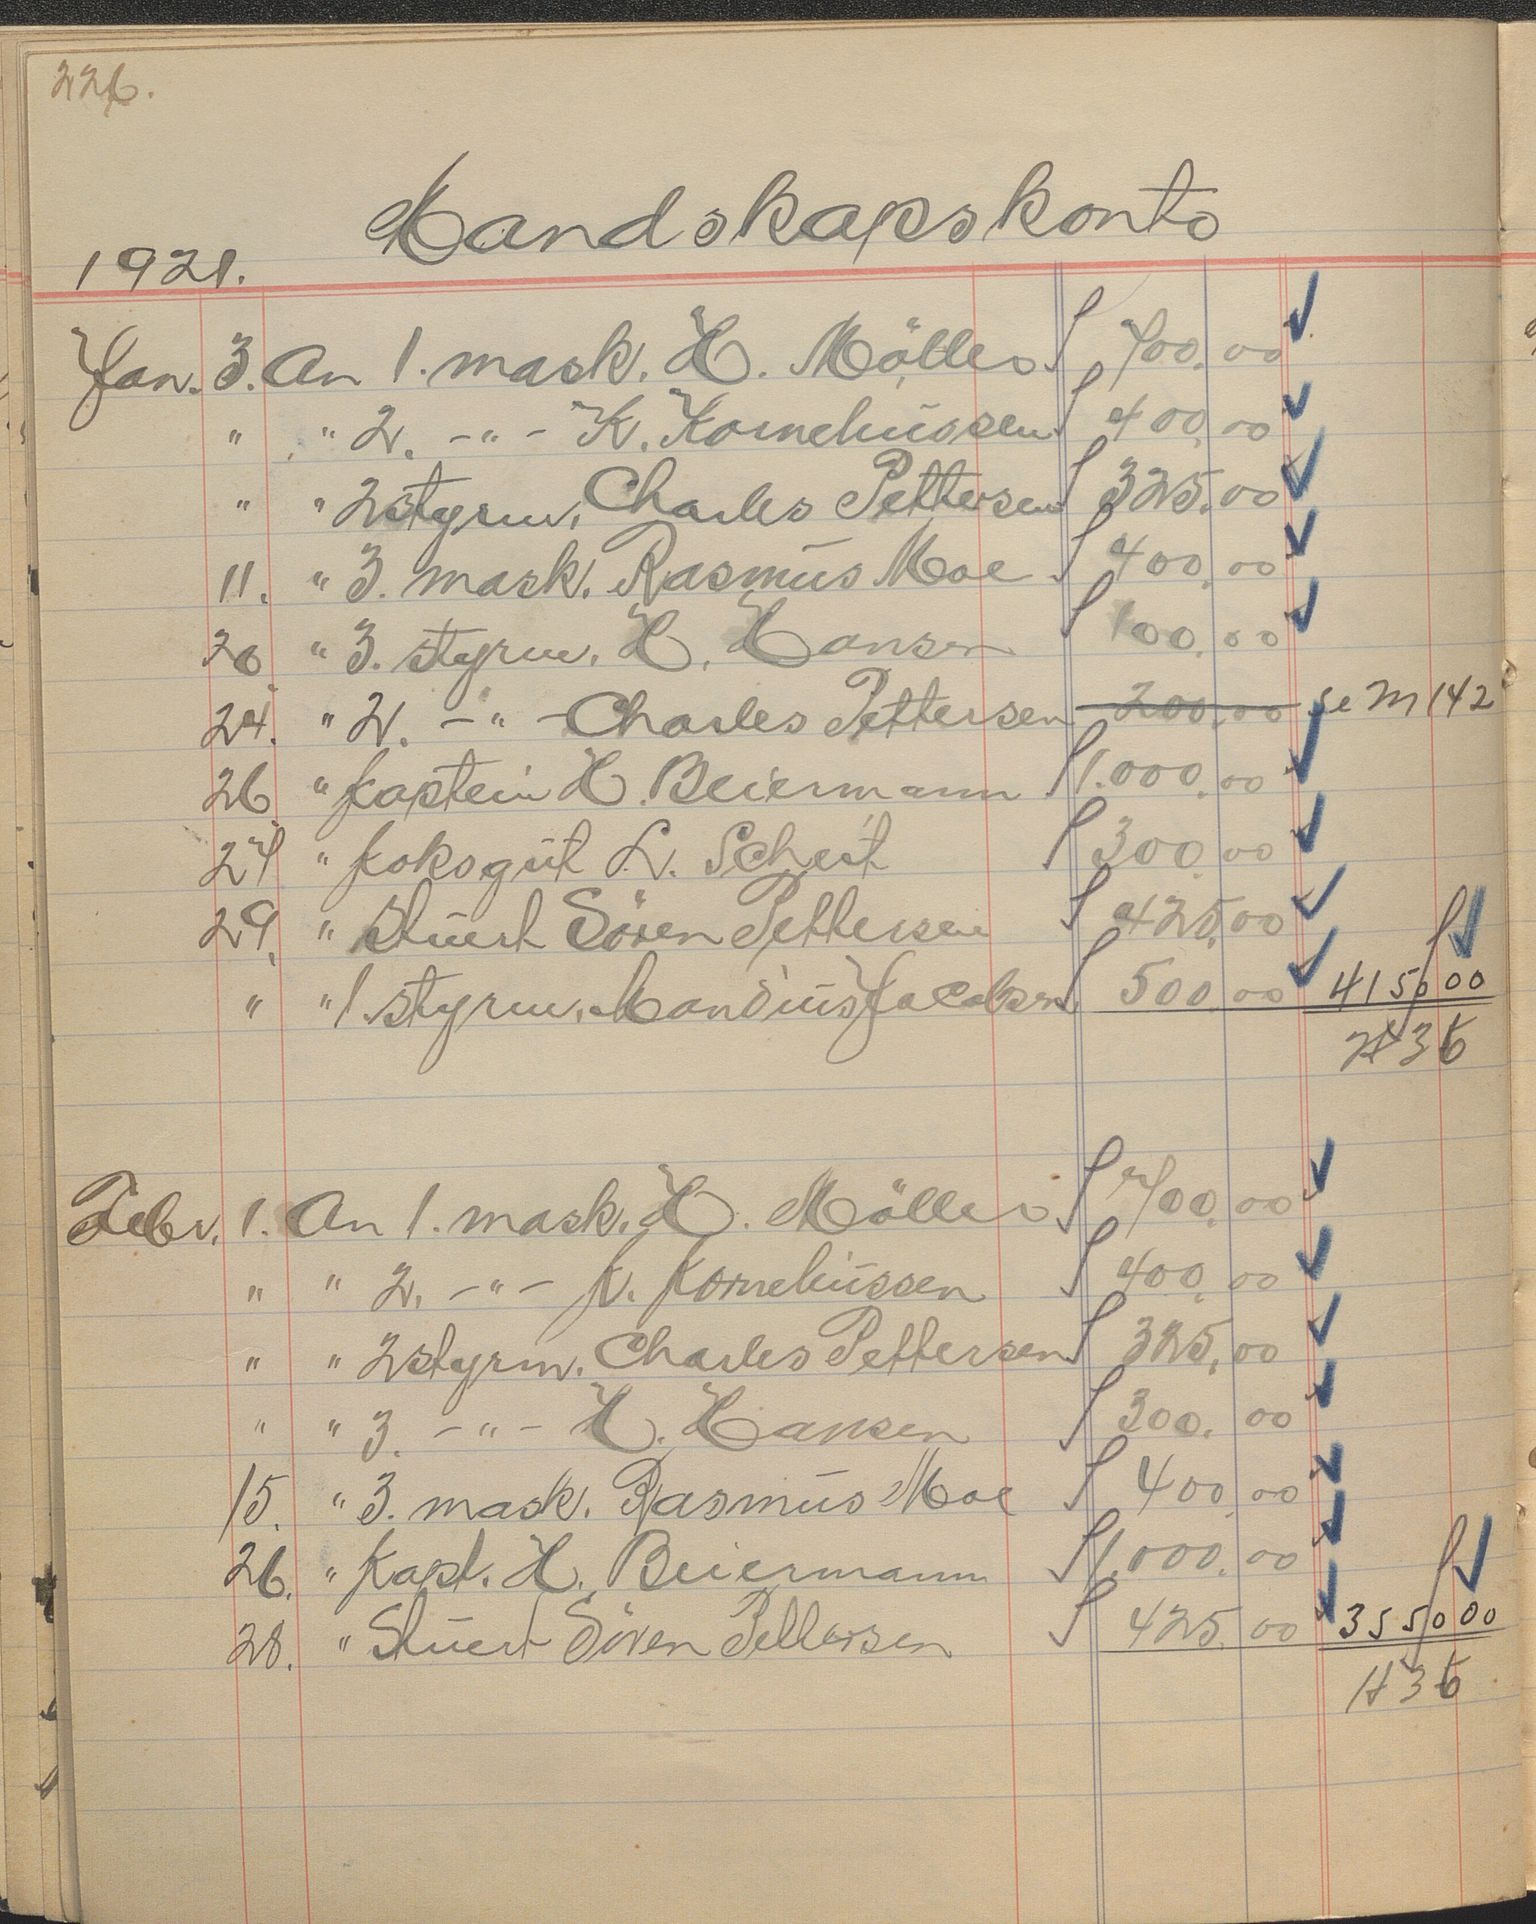 226.
Mandskapskonto
1921.
Jan. 3. An 1. mask. H. Möller 700.00
" " 2. -"- K. Kornelius­sen 400.00
" " 2 styrm. Charles Pettersen 325.00
11. " 3. mask. Rasmus Moe 400.00
20 " 3. styrm. H. Hansen 100.00
24. " 2. -"- Charles Pettersen 200.00 se M 142
26 " Kaptein H. Beiermann 1.000.00
27 " koksgut L. 300.00
29. " Stuert Sören Pettersen 425.00
" " 1. styrm. Mandius Jacobsen 500.00 4150 00
36
Febr. 1. An 1. mask. H. Möller 700.00
" " 2. -"- K. Korneliussen 400.00
" " 2 styrm. Charles Pettersen 325.00
" " 3. -"- H. Hansen 300.00
15. " 3. mask. Rasmus Moe 400.00
26. " Kapt. H. Beiermann 1.000.00
28. " Stuert Sören Pettersen 425.00 3550 00
H 36